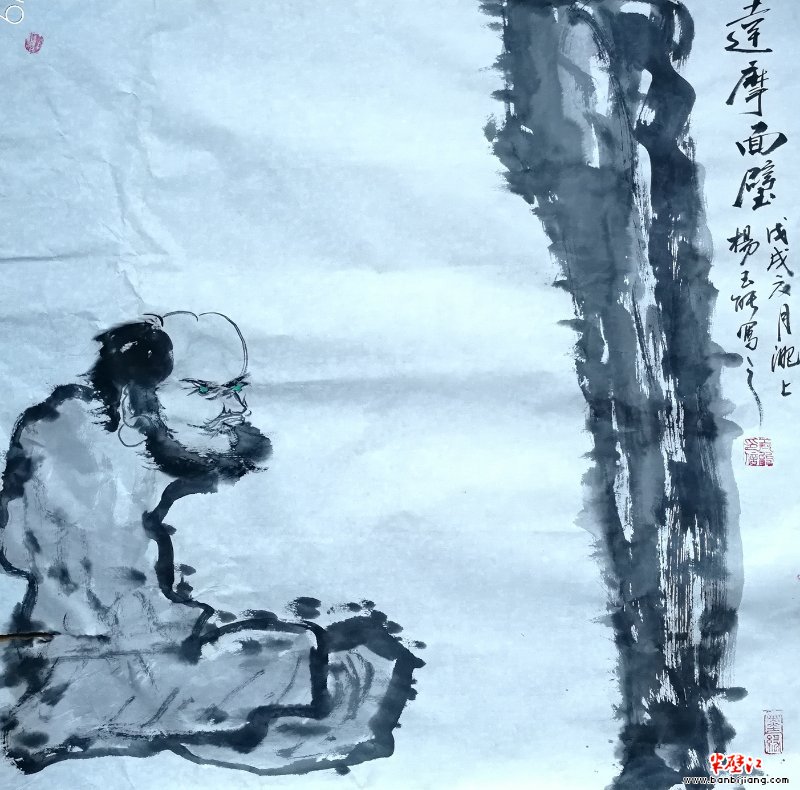 達摩面壁
戊戌六月淝上
楊玉能寫之
半壁江
www.banbijiang.com